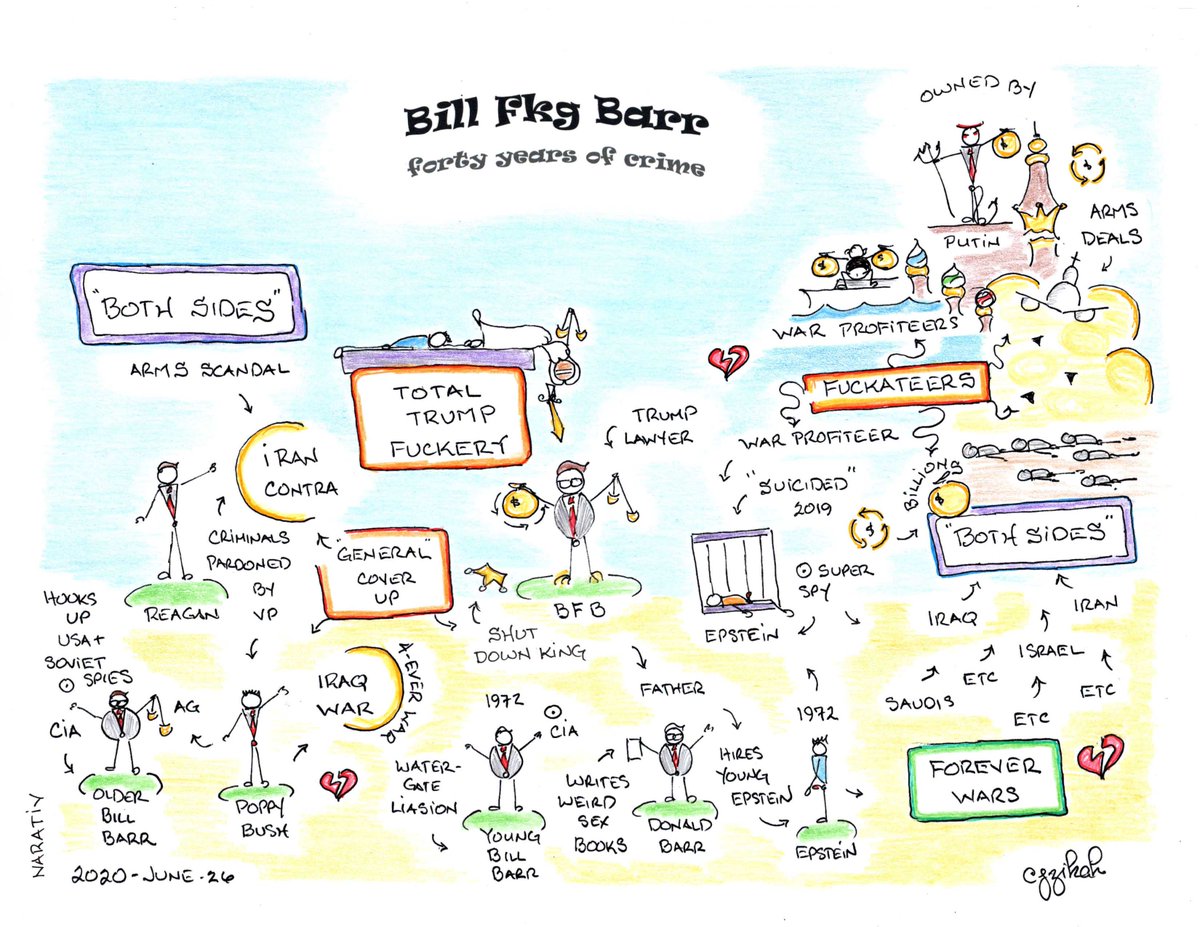 Bill Fkg Barr
forty years of crime
OWNED BY
PUTIN
ARMS
DEALS
"BOTH SIDES"
ARMS SCANDAL
IRAN
CONTRA
TOTAL
TRUMP
FUCKERY
TRUMP
LAWYER
WAR PROFITEERS
FUCKATEERS
WAR PROFITEER
BILLIONS
$
"SUICIDED"
2019
"BOTH SIDES"
CRIMINALS
PARDONED
BY
VP
REAGAN
"GENERAL"
COVER
UP
BFB
SHUT
DOWN KING
EPSTEIN
SUPER
SPY
IRAQ
IRAN
ISRAEL
SAUDIS
ETC
ETC
ETC
HOOKS
UP
USA+
SOVIET
SPIES
CIA
AG
OLDER
BILL
BARR
POPPY
BUSH
IRAQ
WAR
A-EVER WAR
WATER-
GATE
LIASION
1972
CIA
YOUNG
BILL
BARR
FATHER
WRITES
WEIRD
SEX
BOOKS
DONALD
BARR
HIRES
YOUNG
EPSTEIN
1972
EPSTEIN
FOREVER
WARS
NARATIV
2020-JUNE-26